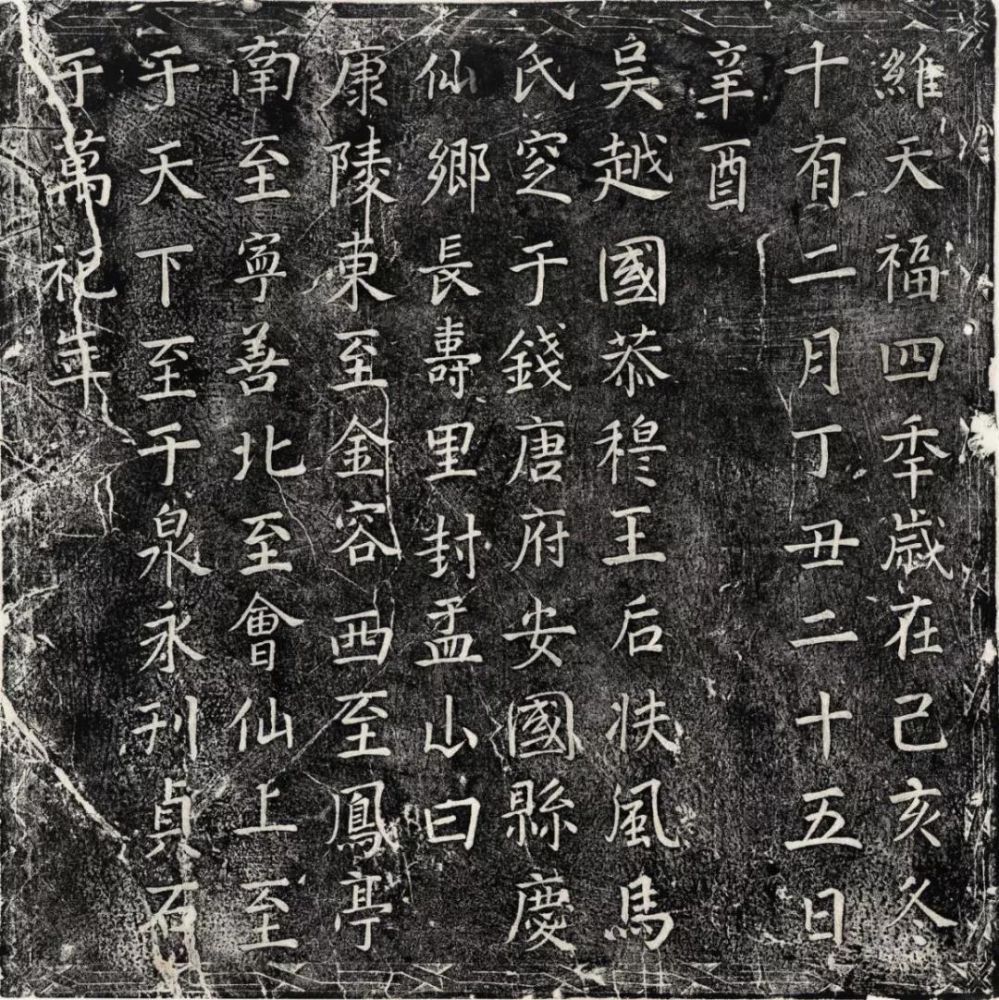 維天福四秊歲在己亥冬
十有二月丁丑二十五日
辛酉
吴越國恭穆王后扶風馬
氏窆于錢唐府安國縣慶
仙鄉長壽里封孟山曰
康陵東至金容西至鳳亭
南至寧善北至會仙上至
于天下至于泉永刋貞石
于萬祀年